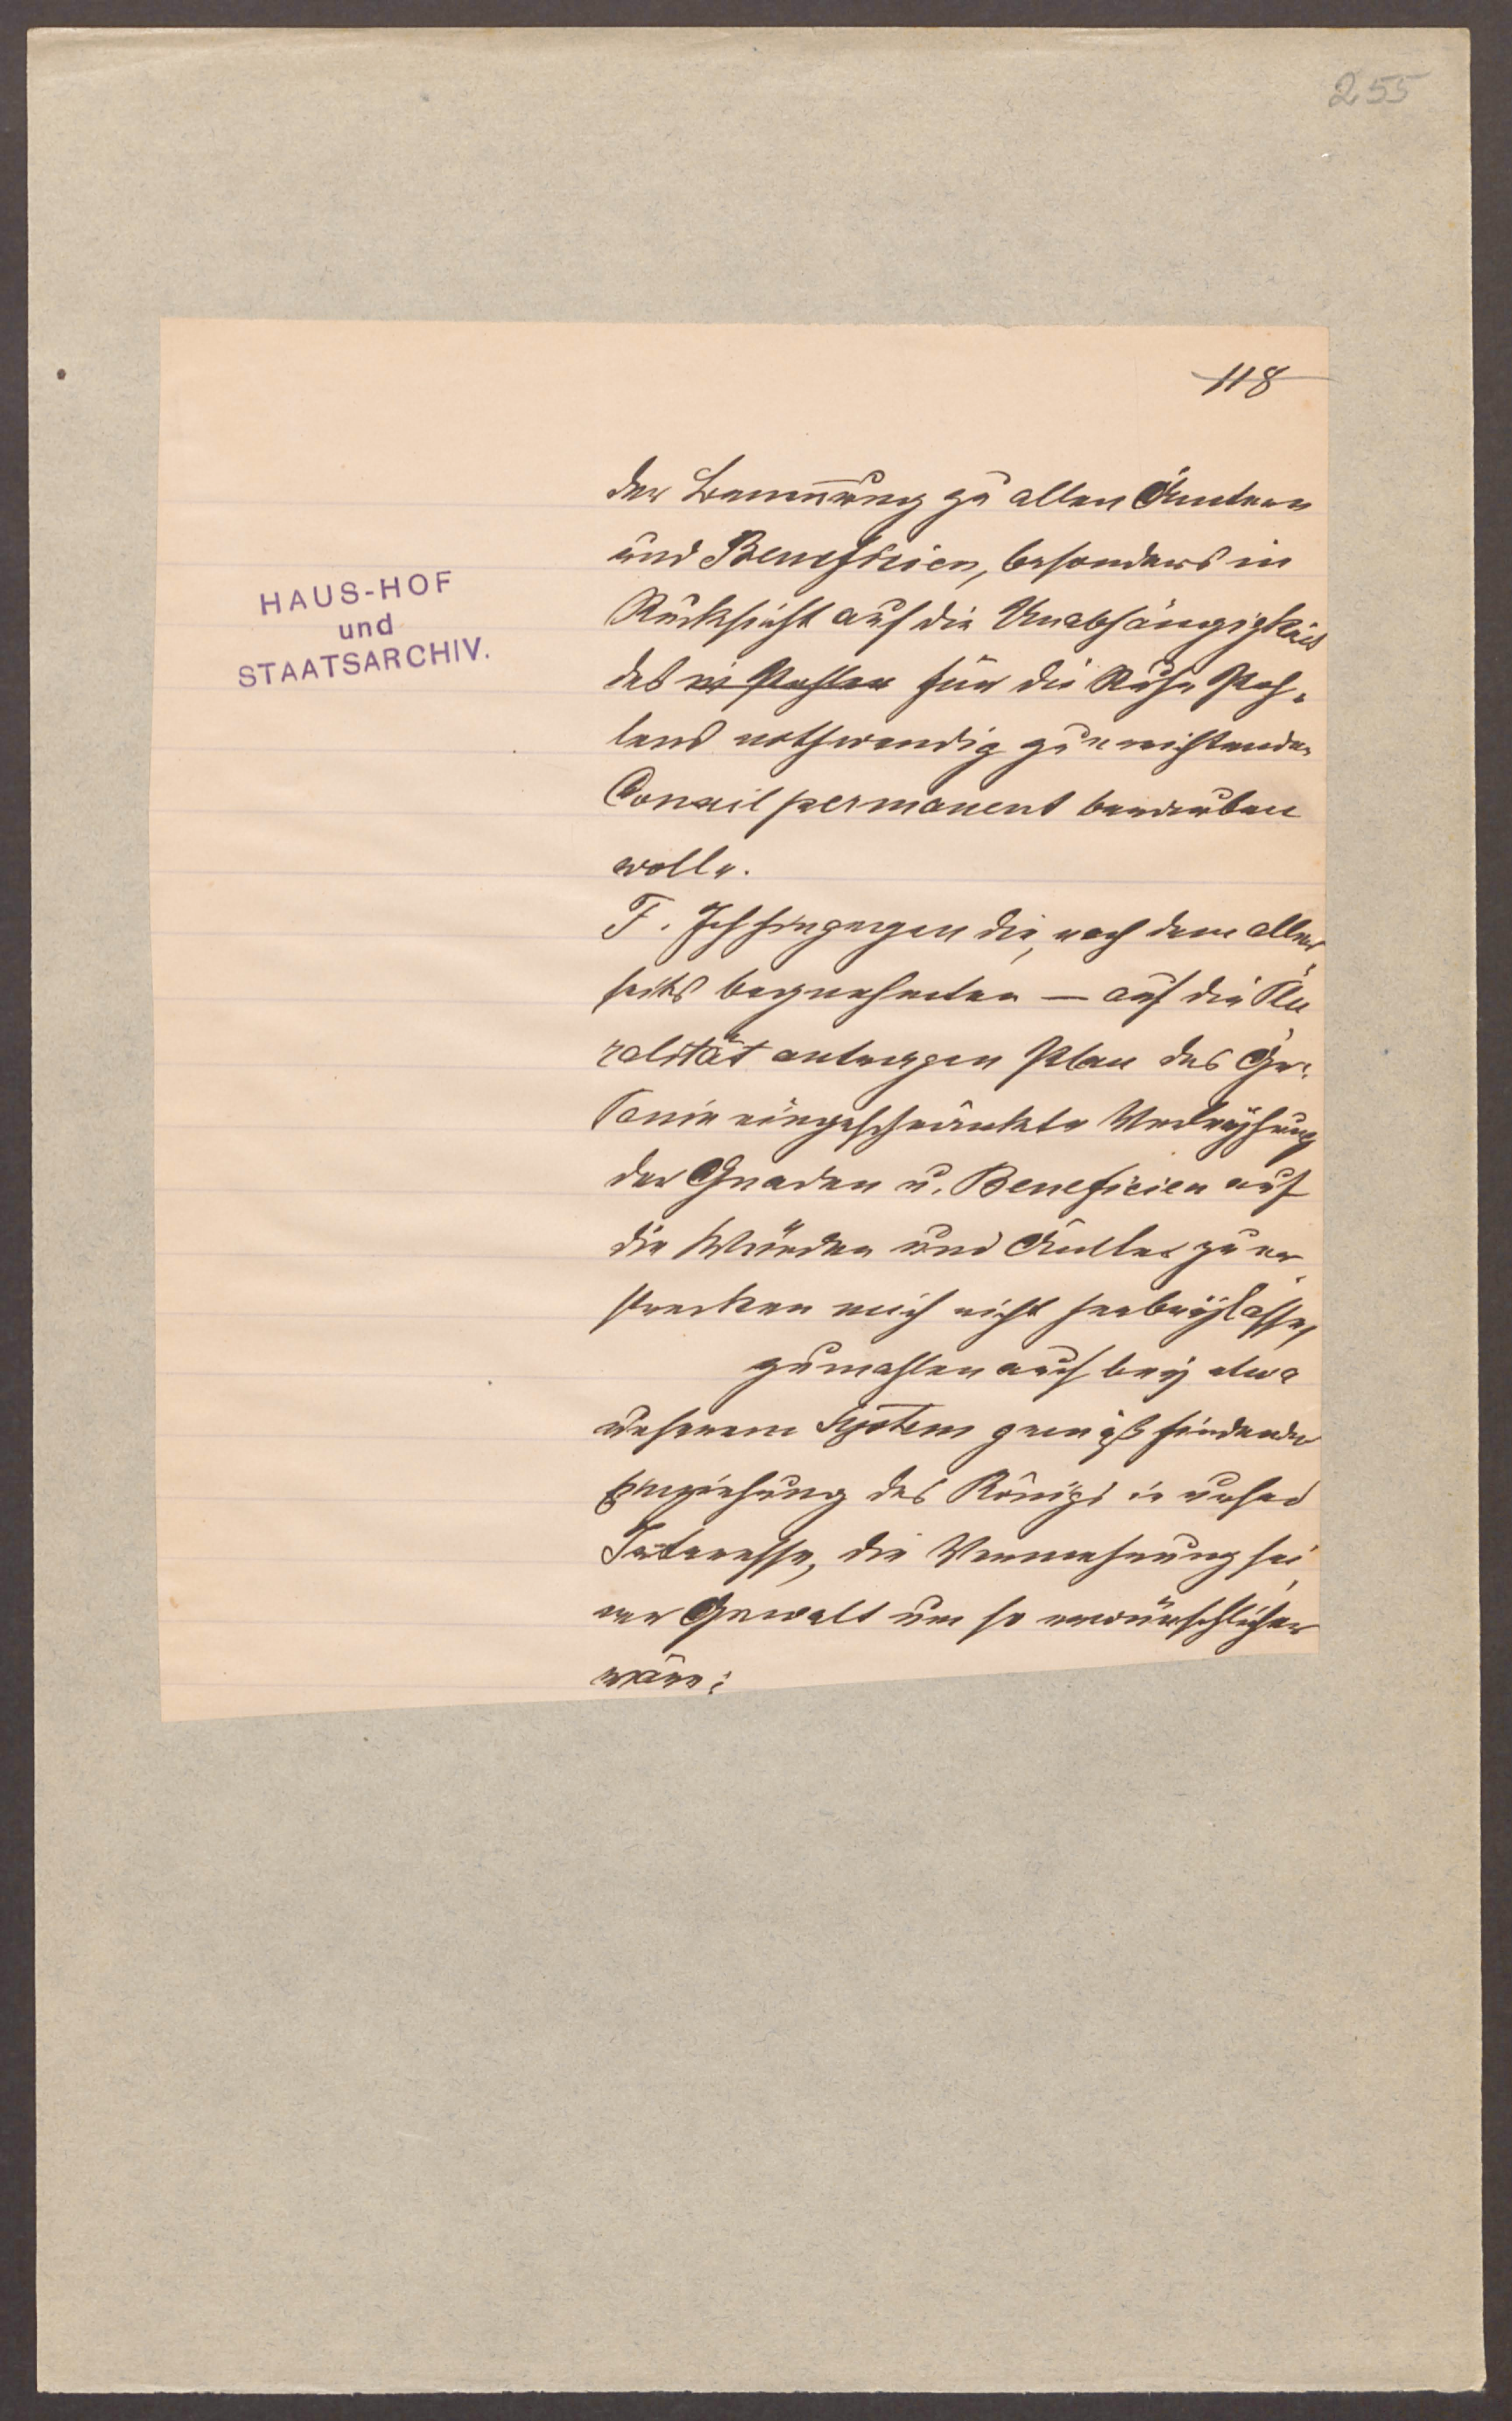 255
118
HAUS-HOF
und
STAATSARCHIV.
der Benennung zu allen Ämtern
und Beneficien, besonders in
Rücksicht auf die Unabhängigkeit
des in Pohlen für die Ruhe Poh-
lens nothwendig zu errichtenden
Conseil permanent berauben
wolle.
F. Ich hingegen die, nach dem aller-
seits begnehmten — auf die Plu-
ralität antragen Plan des Ge-
eingeschränkte Verleyhung
der Gnaden u. Beneficien auf
die Würden und Ämter zu er-
strecken mich nicht herbeylasse,
zumahlen auch bey etwa
unserem System gemäß findender
Einziehung des Königs in unser
Interesse, die Vermehrung sei-
ner Gewalt um so erwünschlicher
wäre;